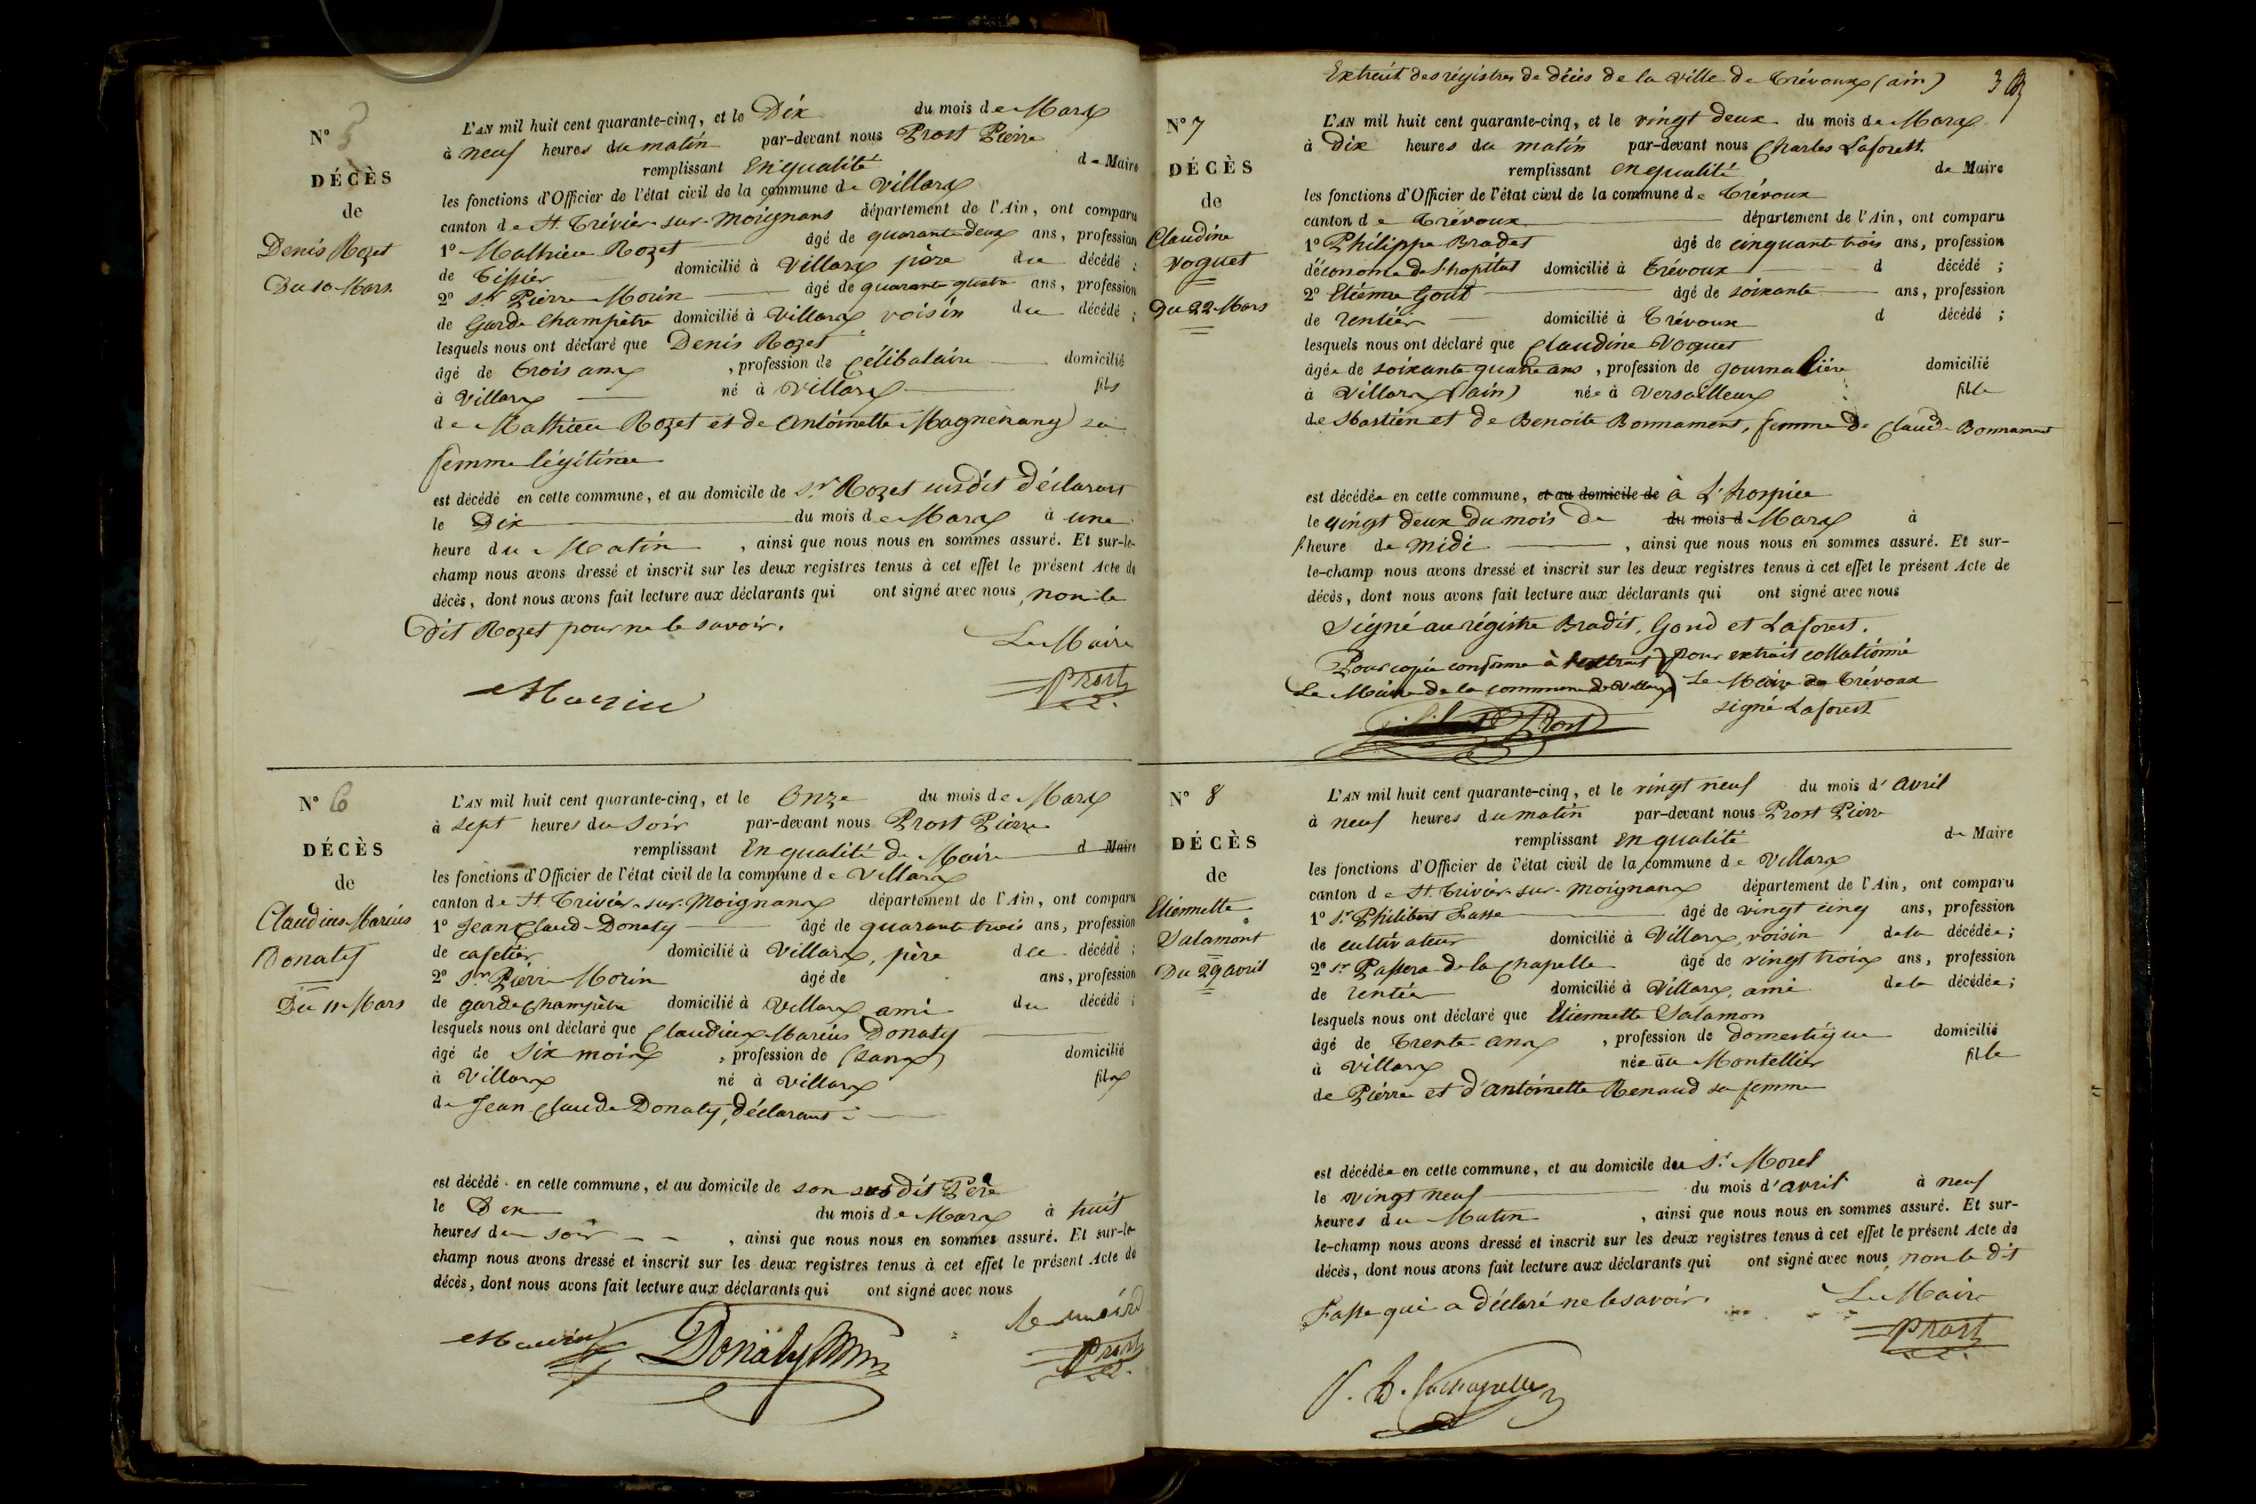 N° 5
DÉCÈS
de
Denis Rozet
Du 10 Mars
L'AN mil huit cent quarante-cinq, et le Dix du mois de Mars
à neuf heures du matin par-devant nous Prost Pierre
remplissant En qualité de Maire
les fonctions d'Officier de l'état civil de la commune de Villars
canton de St. Trivier-sur-Moignans département de l'Ain, ont comparu
1° Mathieu Rozet âgé de quarante deux ans, profession
de Tissier domicilié à Villars père du décédé ;
2° Sr. Pierre Morin âgé de quarante quatre ans, profession
de Garde Champêtre domicilié à Villars voisin du décédé ;
lesquels nous ont déclaré que Denis Rozet
âgé de trois ans , profession de Célibataire domicilié
à Villars né à Villars fils
de Mathieu Rozet et de Antoinette Magnenang sa
femme légitime
est décédé en cette commune, et au domicile de Sr. Rozet susdit Déclarant
le Dix du mois de Mars à une
heure du Matin , ainsi que nous nous en sommes assuré. Et sur-le-
champ nous avons dressé et inscrit sur les deux registres tenus à cet effet le présent Acte de
décès, dont nous avons fait lecture aux déclarants qui ont signé avec nous, non le
Dit Rozet pour ne le savoir.
Le Maire
Mourin
Prost
N° 6
DÉCÈS
de
Claudius Marius
Donaty
Du 11 Mars
L'AN mil huit cent quarante-cinq, et le Onze du mois de Mars
à sept heures du Soir par-devant nous Prost Pierre
remplissant En qualité de Maire d Maire
les fonctions d'Officier de l'état civil de la commune de Villars
canton de St Trivier-sur-Moignans département de l'Ain, ont comparu
1° Jean Claude Donaty âgé de quarante trois ans, profession
de cafetier domicilié à Villars, père du décédé ;
2° Sr. Pierre Morin âgé de ans, profession
de garde champêtre domicilié à Villars ami du décédé ;
lesquels nous ont déclaré que Claudius Marius Donaty
âgé de Six mois , profession de (sans) domicilié
à Villars né à Villars fils
de Jean Claude Donaty, déclarant
est décédé en cette commune, et au domicile de son susdit Père
le Dix du mois de Mars à huit
heures du soir , ainsi que nous nous en sommes assuré. Et sur-le-
champ nous avons dressé et inscrit sur les deux registres tenus à cet effet le présent Acte de
décès, dont nous avons fait lecture aux déclarants qui ont signé avec nous
le maire
Mourin Donaty Prost
Extrait des régistres de décès de la ville de Trévoux (ain) 3
N° 7
DÉCÈS
de
Claudine
Voguet
Du 22 Mars
L'AN mil huit cent quarante-cinq, et le vingt deux du mois de Mars
à Dix heures du matin par-devant nous Charles Laforest.
remplissant en qualité de Maire
les fonctions d'Officier de l'état civil de la commune de Trévoux
canton de Trévoux département de l'Ain, ont comparu
1° Philippe Bradet âgé de cinquante trois ans, profession
d'économe de l'hopital domicilié à Trévoux d décédé ;
2° Etienne Gout âgé de soixante ans, profession
de rentier domicilié à Trévoux d décédé ;
lesquels nous ont déclaré que Claudine Voguet
âgée de soixante quatre ans , profession de journalière domicilié
à Villars (ain) née à Versailleux fille
de Bastien et de Benoite Bonnament, femme de Claude Bonnament
est décédée en cette commune, et au domicile de à L'hospice
le vingt deux du mois de du mois d Mars à
l'heure de midi , ainsi que nous nous en sommes assuré. Et sur-
le-champ nous avons dressé et inscrit sur les deux registres tenus à cet effet le présent Acte de
décès, dont nous avons fait lecture aux déclarants qui ont signé avec nous
Signé au régistre Bradit, Goud et Laforest.
Pour copie conforme à l'extrait
Le Maire de la commune de Villars
Prost
pour extrait collationné
Le Maire de Trévoux
signé Laforest
N° 8
DÉCÈS
de
Etiennette
Salamont
Du 29 avril
L'AN mil huit cent quarante-cinq, et le vingt neuf du mois d'avril
à neuf heures du matin par-devant nous Prost Pierre
remplissant en qualité de Maire
les fonctions d'Officier de l'état civil de la commune de Villars
canton de St. Trivier-sur-Moignans département de l'Ain, ont comparu
1° Sr. Philibert Fasse âgé de vingt cinq ans, profession
de cultivateur domicilié à Villars, voisin de la décédée ;
2° Sr. Passera de la Chapelle âgé de vingt trois ans, profession
de rentier domicilié à Villars, ami de la décédée ;
lesquels nous ont déclaré que Etiennette Salamon
âgé de Trente ans , profession de domestique domicilié
à Villars née au Montellier fille
de Pierre et d'Antoinette Renaud sa femme
est décédée en cette commune, et au domicile du Sr. Morel
le vingt neuf du mois d'avril à neuf
heures du Matin , ainsi que nous nous en sommes assuré. Et sur-
le-champ nous avons dressé et inscrit sur les deux registres tenus à cet effet le présent Acte de
décès, dont nous avons fait lecture aux déclarants qui ont signé avec nous, non le dit
Fasse qui a déclaré ne le savoir.
Le Maire
Prost
P. D. Lachapelle